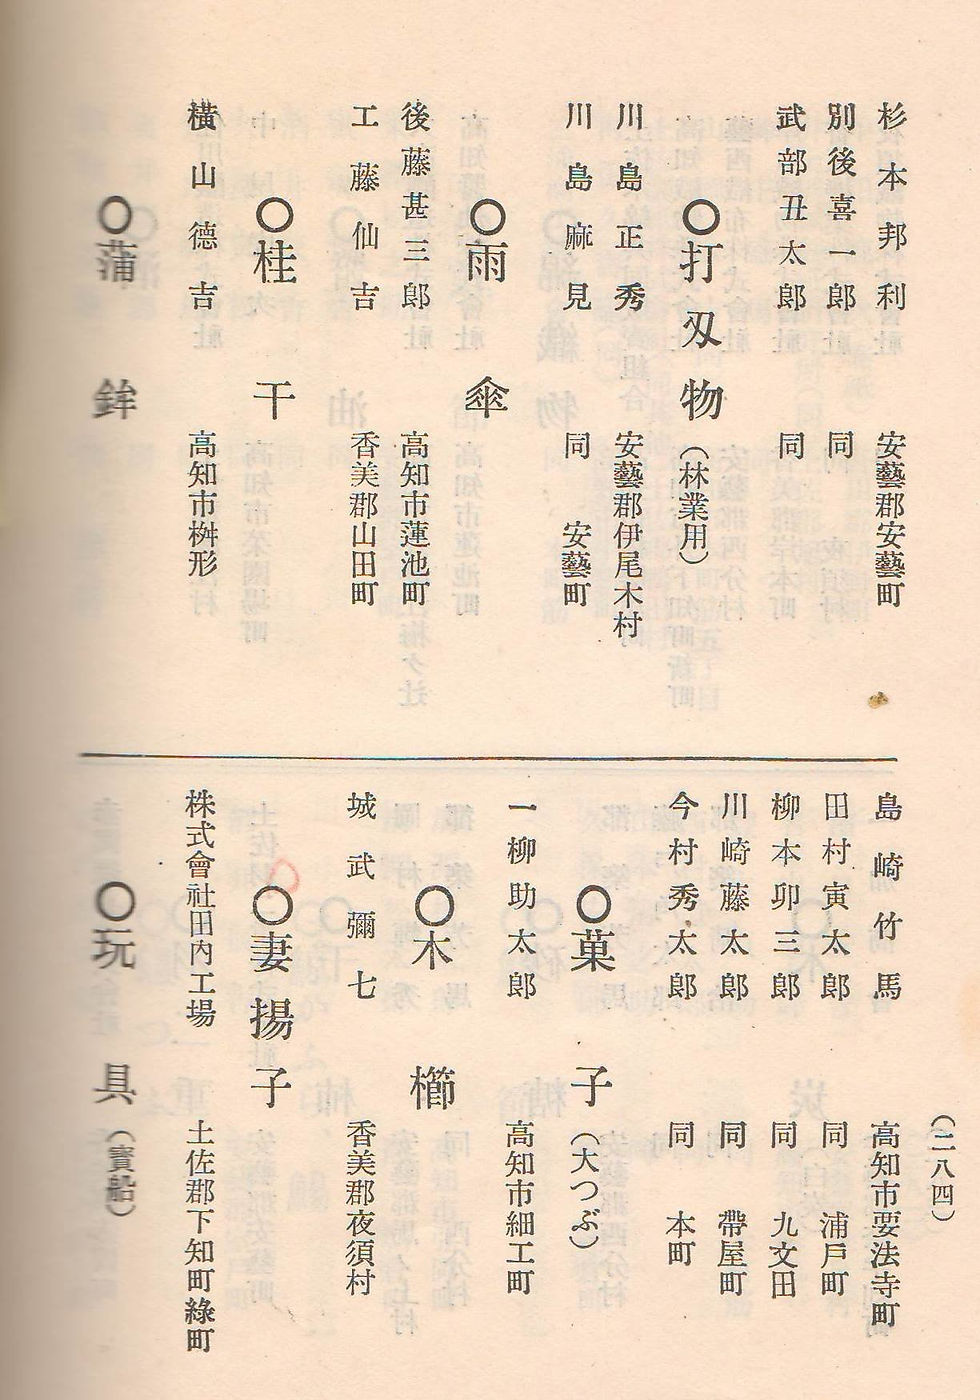 杉本邦利 安藝郡安藝町
別後喜一郎 同
武部丑太郎 同
〇打刄物(林業用)
川島正秀 安藝郡伊尾木村
川島麻見 同 安藝町
〇雨傘
後藤甚三郎 高知市蓮池町
工藤仙吉 香美郡山田町
〇桂干
橫山德吉 高知市桝形
〇蒲鉾
(二八四)
島崎竹馬 高知市要法寺町
田村寅太郎 同 浦戶町
柳本卯三郎 同 九文田
川崎藤太郎 同 帶屋町
今村秀太郎 同 本町
〇菓子(大つぶ)
一柳助太郎 高知市細工町
〇木櫛
城武彌七 香美郡夜須村
〇妻揚子
株式會社田內工場 土佐郡下知町綠町
〇玩具(寶船)